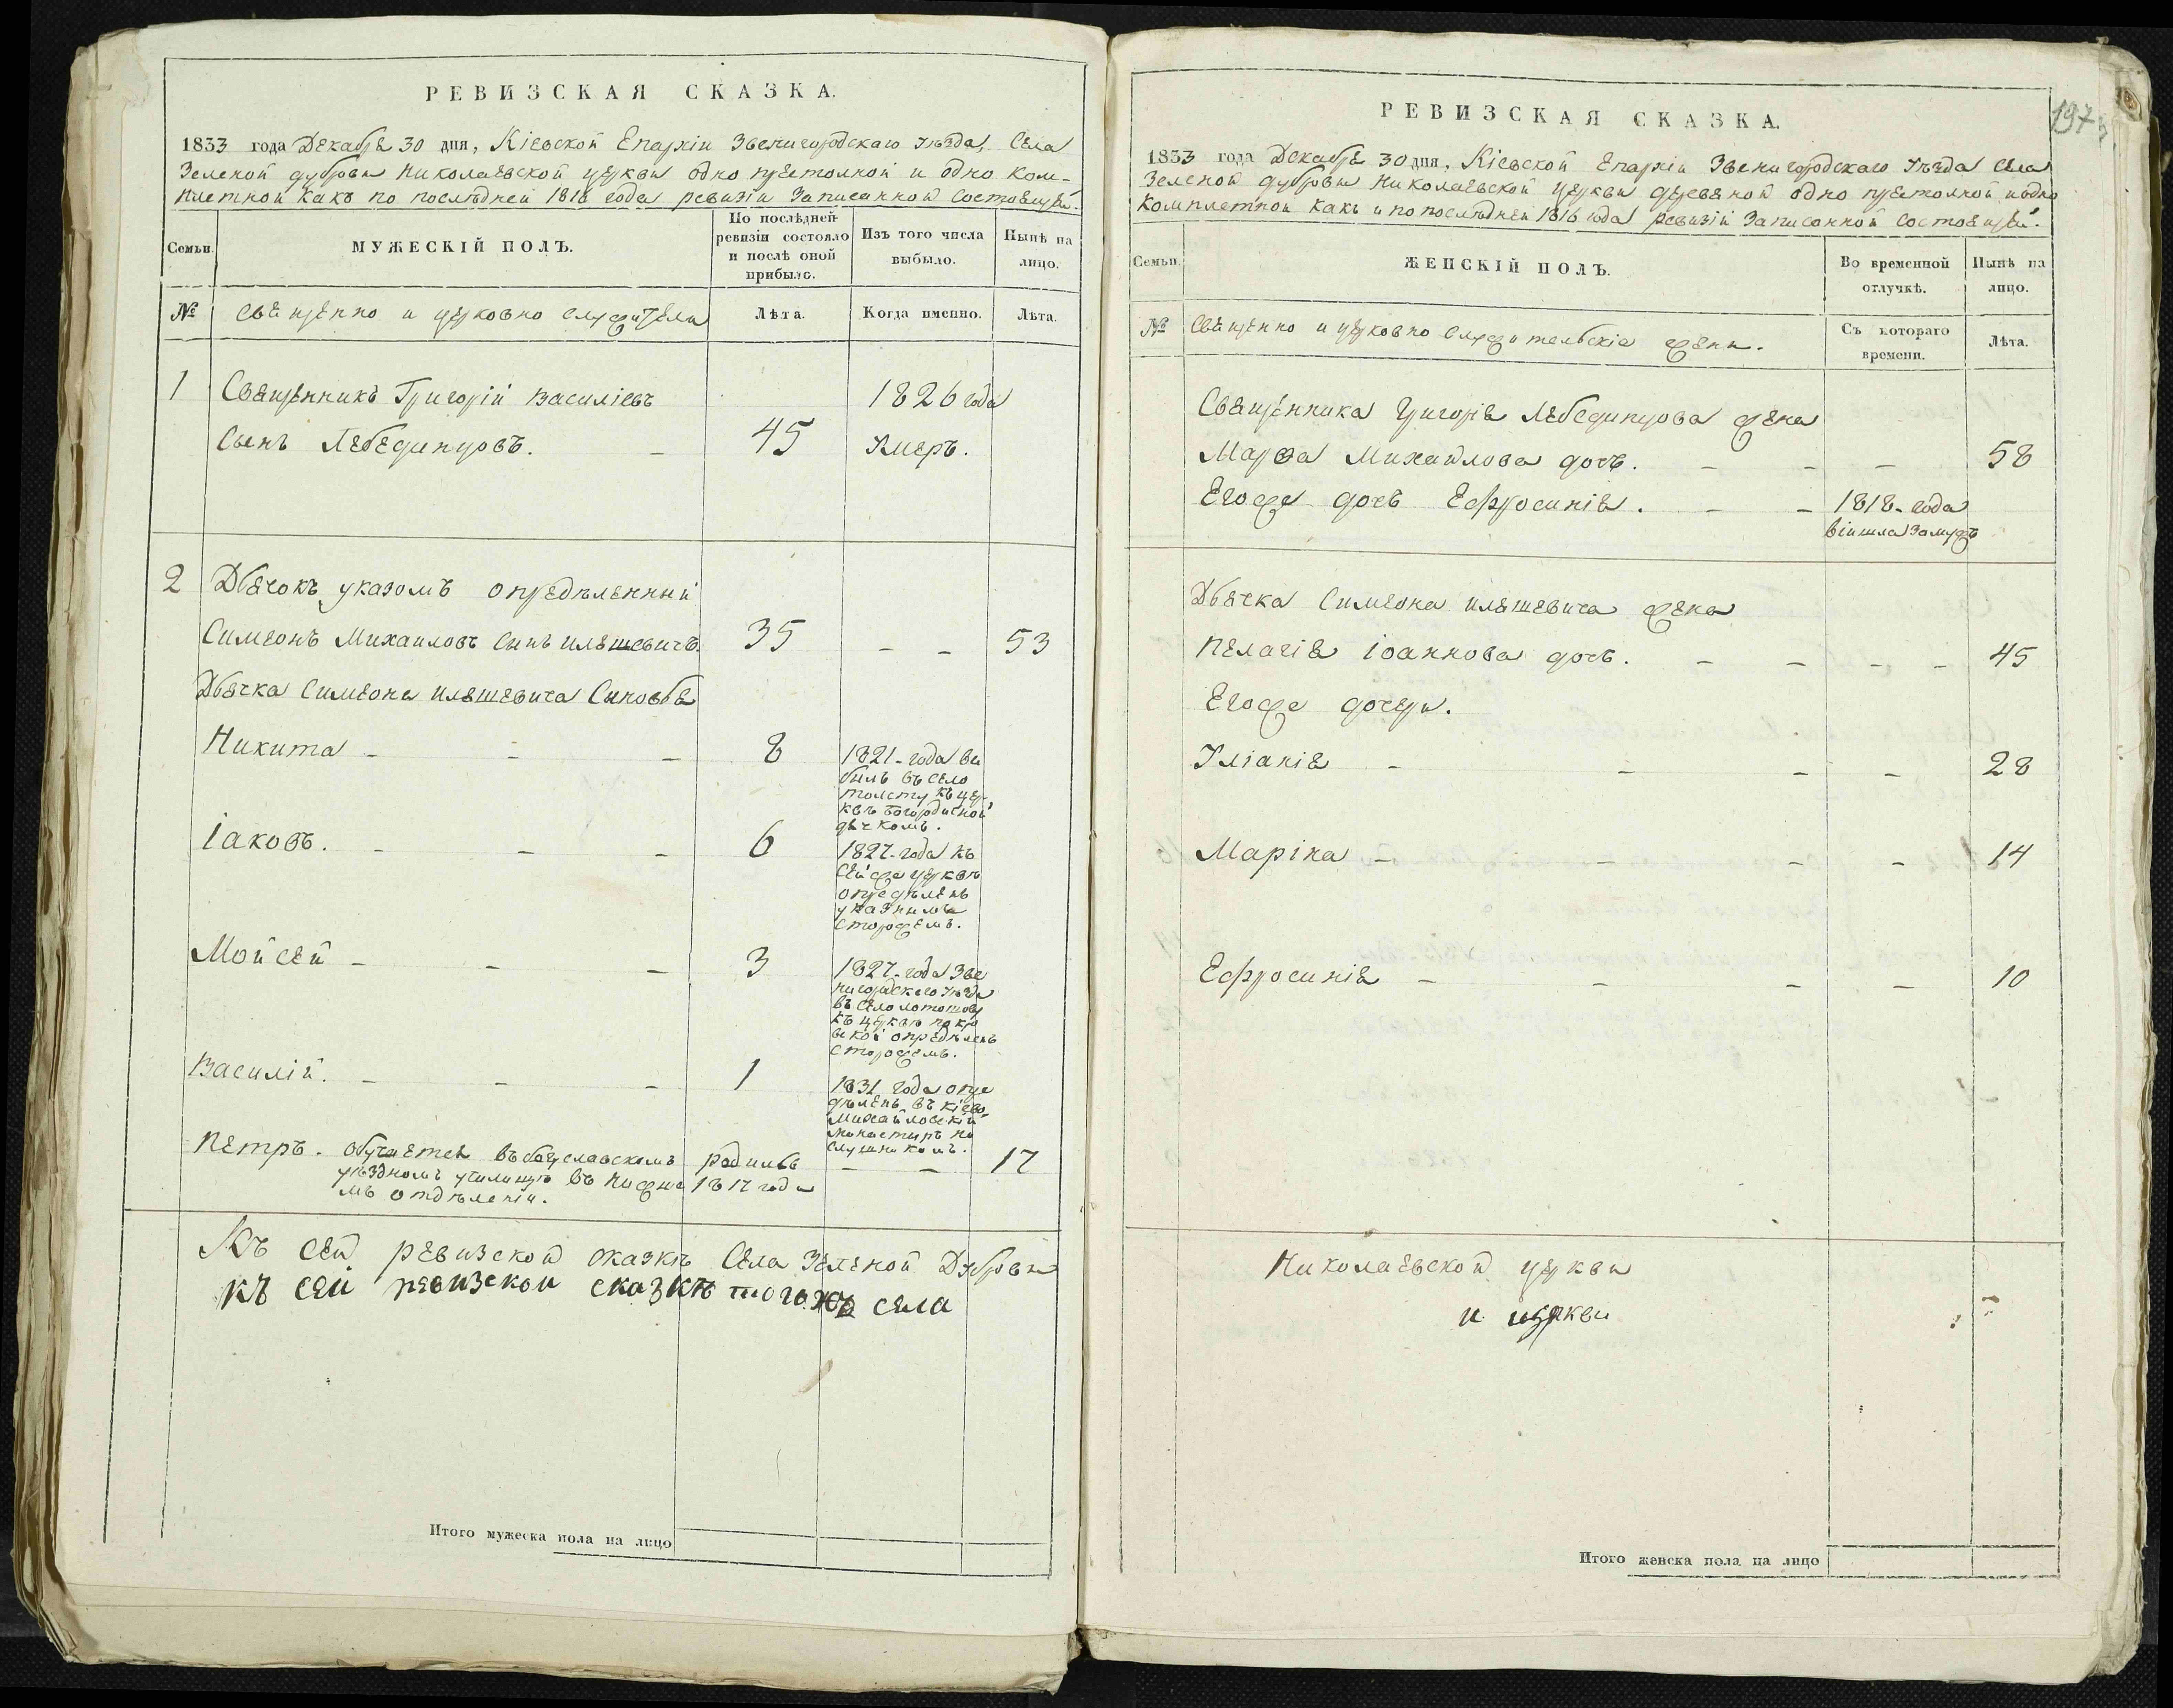 РЕВИЗСКАЯ СКАЗКА.
1833 года Декабря 30 дня, Кіевской Епархіи Звенигородскаго уѣзда, Села
Зеленой дубровы Николаевской церкви одно престолной и одно ком-
плетной какъ по послѣдней 1816 года ревизіи записанной состоящей.
Семьи.
МУЖЕСКІЙ ПОЛЪ.
По послѣдней ревизіи состояло и послѣ оной прибыло.
Изъ того числа выбыло.
Нынѣ на лицо.
№
священно и церковно служители
Лѣта.
Когда именно.
Лѣта.
1 Священникъ Григорій Василіевъ 1826 года
Сынъ Лебединцовъ. 45 Умеръ.
2 Дьячокъ указомъ опредѣленный
Симеонъ Михаиловъ Сынъ Иляшевичъ 35 53
Дьячка Симеона Иляшевича Сыновья
Никита 8 1821-года вы
былъ въ село
толсту къ цер
квѣ Богородичной
дячкомъ.
Іаковъ. 6 1827-года къ
Сей же церквѣ
опредѣленъ
указнымъ
сторожемъ.
Мойсей 3 1827-года Зве
нигородскаго уѣзда
въ село
къ церквѣ покро
вской опредѣленъ
сторожемъ.
Василій. 1 1831 года опре
дѣленъ въ кіево
михайловскій
монастырь по
слушникомъ.
Петръ. обучается въ богуславскомъ родился 17
уѣздномъ училищѣ въ нижше 1817 года
мъ отдѣленіи.
Къ сей ревизской сказкѣ Села Зеленой Дубровы
къ сей ревизской сказкѣ тогожъ села
Итого мужеска пола на лицо
197
РЕВИЗСКАЯ СКАЗКА.
1833 года Декабря 30 дня, Кіевской Епархіи Звенигородскаго уѣзда села
Зеленой дубровы Николаевской церкви деревяной одно престолной и одно
комплетной какъ и по послѣдней 1816 года ревизіи записанной состоящей.
Семьи.
ЖЕНСКІЙ ПОЛЪ.
Во временной отлучкѣ.
Нынѣ на лицо.
№
Священно и церковно служительскіе жены.
Съ котораго времени.
Лѣта.
Священника Григорія Лебединцова жена
Марѳа Михайлова дочь. 58
Егоже дочь Ефросинія. 1818-года
війшла замужъ
Дьячка Симеона Иляшевича жена
Пелагія Іоаннова дочь. 45
Егоже дочери.
Уліанія 28
Маріна 14
Ефросинія 10
Николаевской церкви
и церкви
Итого женска пола на лицо